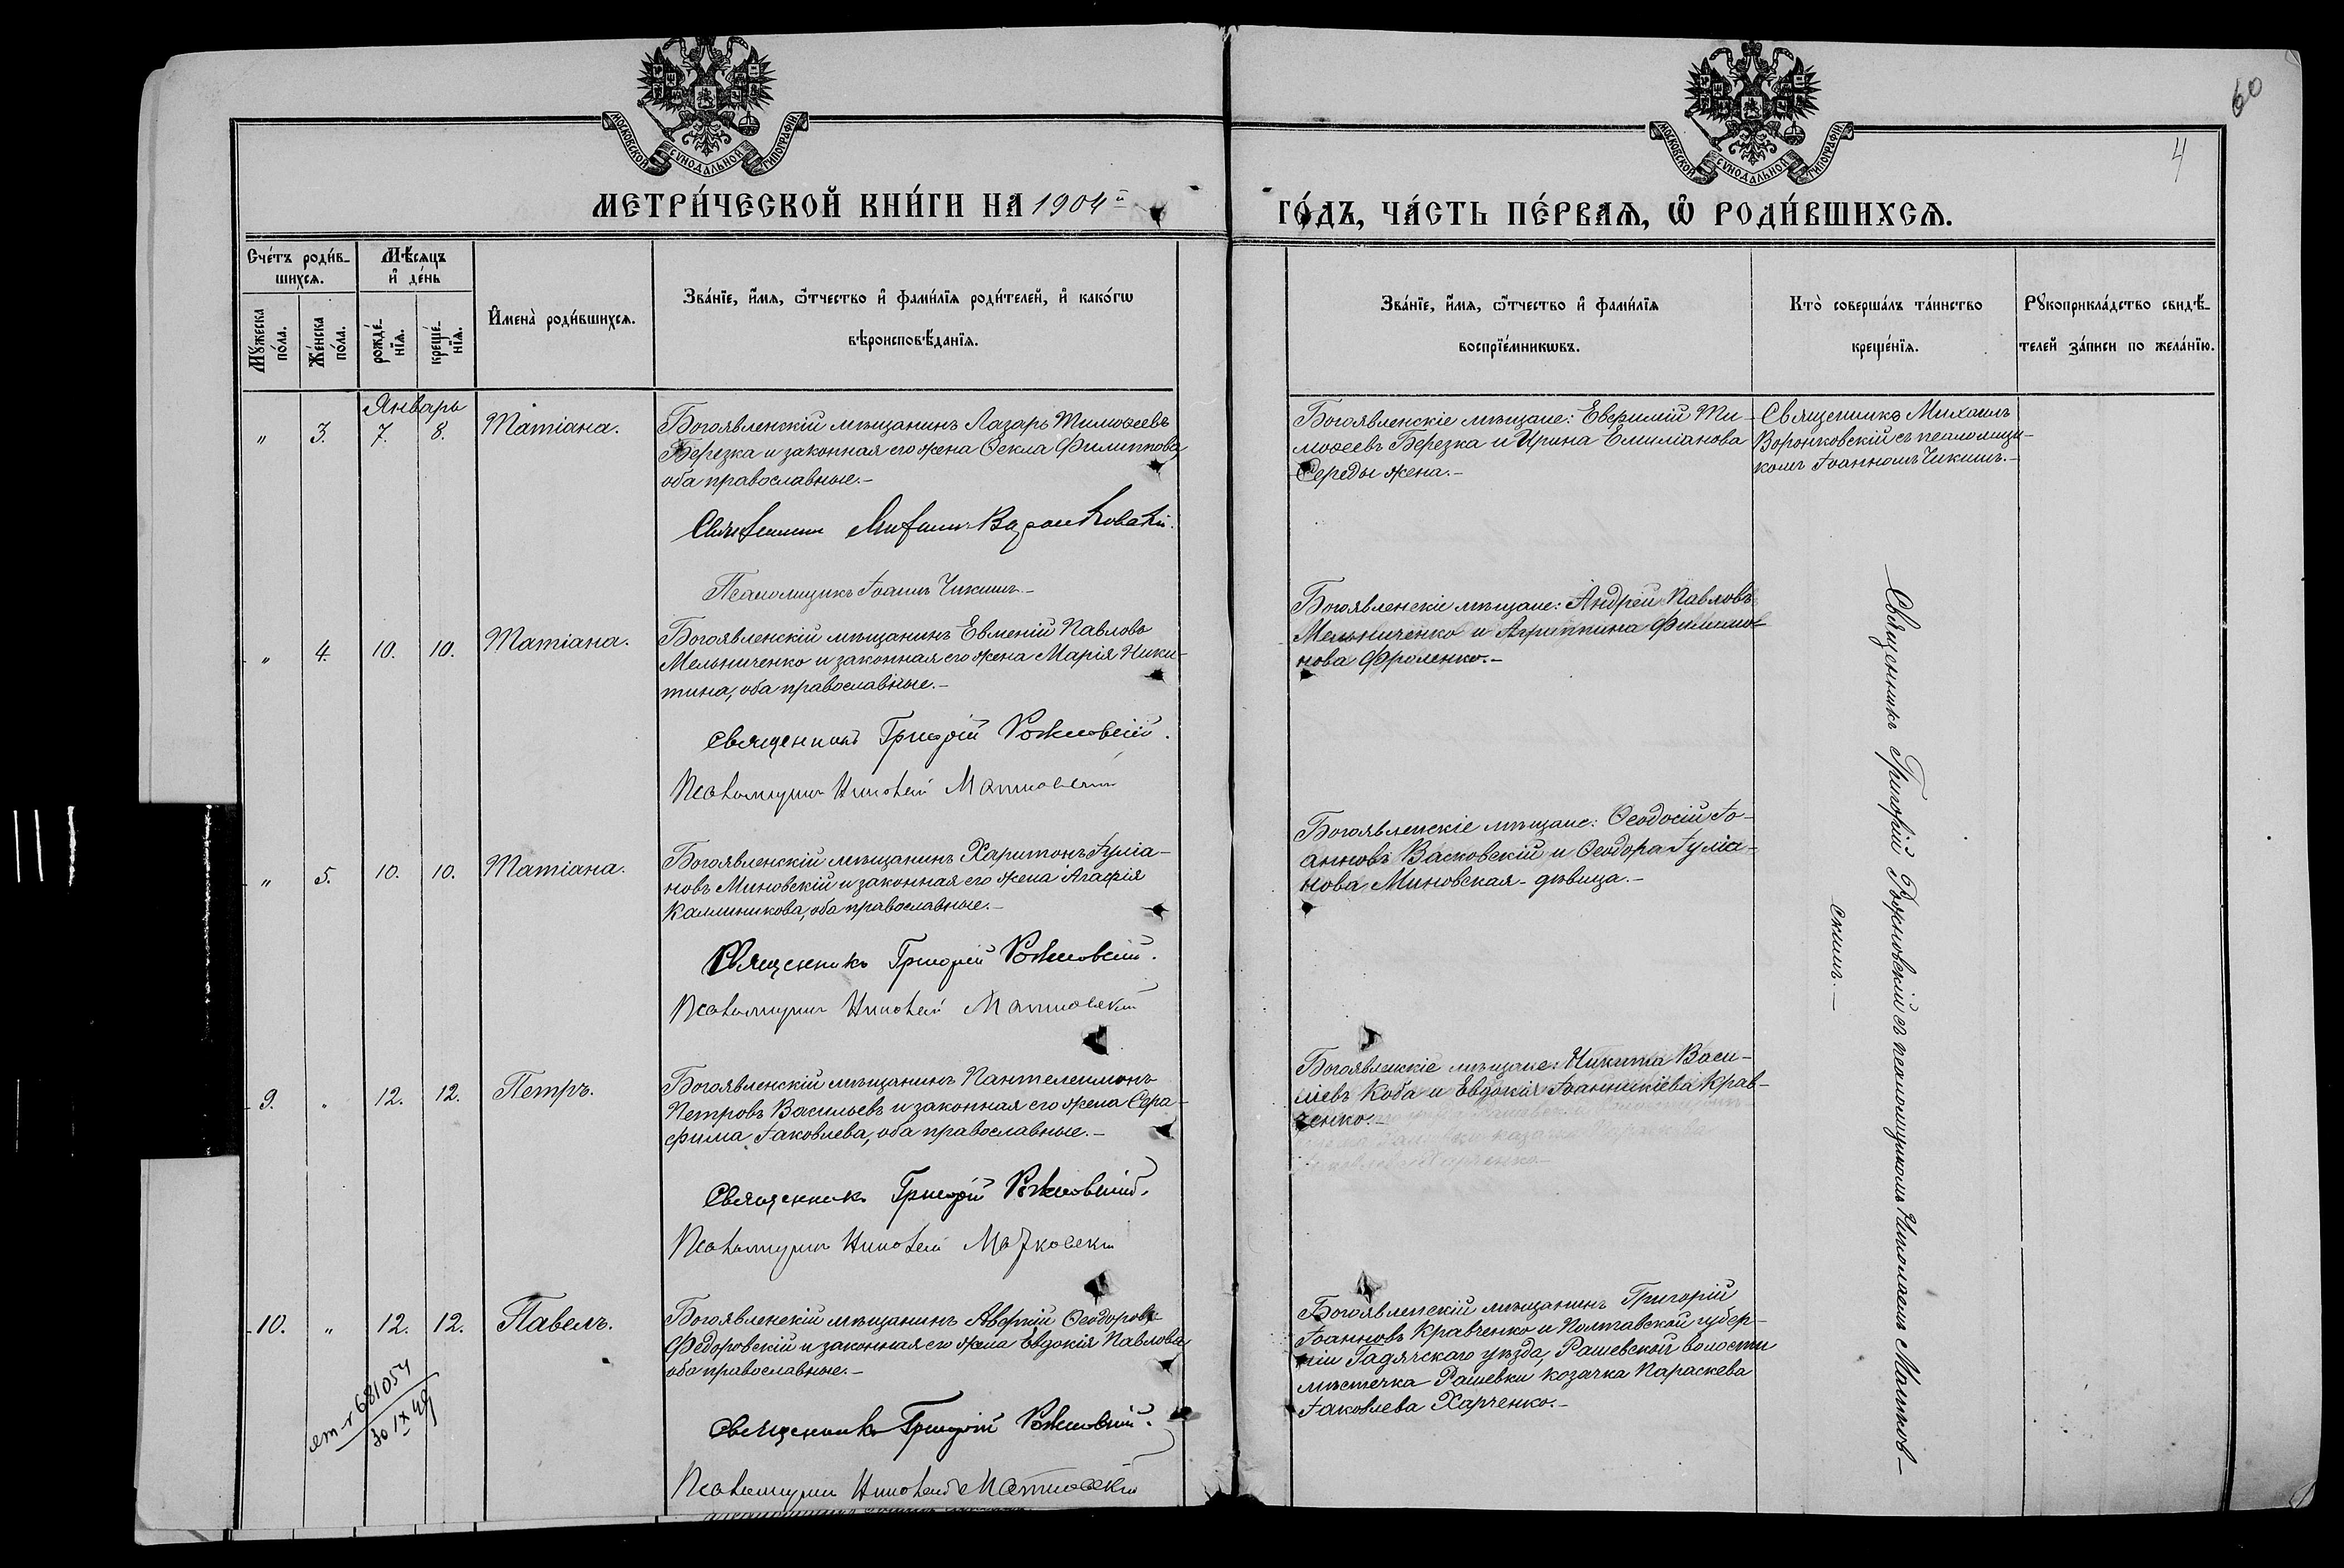 60
4
МОСКОВСКОЙ СѴНОДАЛЬНОЙ ТИПОГРАФІИ.
МОСКОВСКОЙ СѴНОДАЛЬНОЙ ТИПОГРАФІИ.
МЕТРИ́ЧЕСКОЙ КНИ́ГИ НА 1904й
ГО́ДЪ, ЧА́СТЬ ПЕ́РВАѦ, Ѡ҆ РОДИ́ВШИХСѦ.
Сче́тъ роди́в-
шихсѧ.
Мѣ́сѧцъ
и҆ де́нь
Мꙋ́жеска
по́ла.
Же́нска
по́ла.
рожде́-
нїѧ.
креще́-
нїѧ.
И҆мена̀ роди́вшихсѧ.
Зва́нїе, и҆́мѧ, ѻ҆́тчество и҆ фами́лїѧ роди́телей, и҆ како́гѡ
вѣроисповѣ́данїѧ.
Зва́нїе, и҆́мѧ, ѻ҆́тчество и҆ фами́лїѧ
воспрїе́мникѡвъ.
Кто̀ соверша́лъ та́инство
креще́нїѧ.
Рꙋкоприкла́дство свидѣ́-
телей за́писи по жела́нїю.
Январь
" 3. 7. 8. Татіана.
Богоявленскій мѣщанинъ Лазарь Тимоѳеевъ
Березка и законная его жена Ѳекла Филиппова,
оба православные.-
Священникъ Михаилъ Воронковскій.
Псаломщикъ Іоаннъ Чикишъ.-
Богоявленскіе мѣщане: Евфимій Ти-
моѳеевъ Березка и Ирина Емиліанова
Середы жена.-
Священникъ Михаилъ
Воронковскій съ псаломщи-
комъ Іоанномъ Чикишъ.-
" 4. 10. 10. Татіана.
Богоявленскій мѣщанинъ Евменій Павловъ
Мельниченко и законная его жена Марія Ники-
тина, оба православные.-
Священникъ Григорій Рожновскій.
Псаломщикъ Николай Матковскій
Богоявленскіе мѣщане: Андрей Павловъ
Мельниченко и Агриппина Филимо-
нова Фроленко.-
" 5. 10. 10. Татіана.
Богоявленскій мѣщанинъ Харитонъ Іуліа-
новъ Миновскій и законная его жена Агафія
Каллиникова, оба православные.-
Священникъ Григорій Рожновскій.
Псаломщикъ Николай Матковскій
Богоявленскіе мѣщане: Ѳеодосій Іо-
анновъ Васковскій и Ѳеодора Іуліа-
нова Миновская - дѣвица.-
9. " 12. 12. Петръ.
Богоявленскій мѣщанинъ Пантелеимонъ
Петровъ Васильевъ и законная его жена Сера-
фима Іаковлева, оба православные.-
Священникъ Григорій Рожновскій.
Псаломщикъ Николай Матковскій
Богоявленскіе мѣщане: Никита Васи-
ліевъ Коба и Евдокія Іоанникіева Крав-
ченко.-
10. " 12. 12. Павелъ.
Богоявленскій мѣщанинъ Аверкій Ѳеодоровъ
Федоровскій и законная его жена Евдокія Павлова,
оба православные.-
Священникъ Григорій Рожновскій.
Псаломщикъ Николай Матковскій
Богоявленскій мѣщанинъ Григорій
Іоанновъ Кравченко и Полтавской губер-
ніи Гадячскаго уѣзда, Рашевской волости
мѣстечка Рашевки козачка Параскева
Іаковлева Харченко.-
Священникъ Григорій Рожновскій съ псаломщикомъ Николаемъ Матков-
скимъ.-
681054
30 IX 49